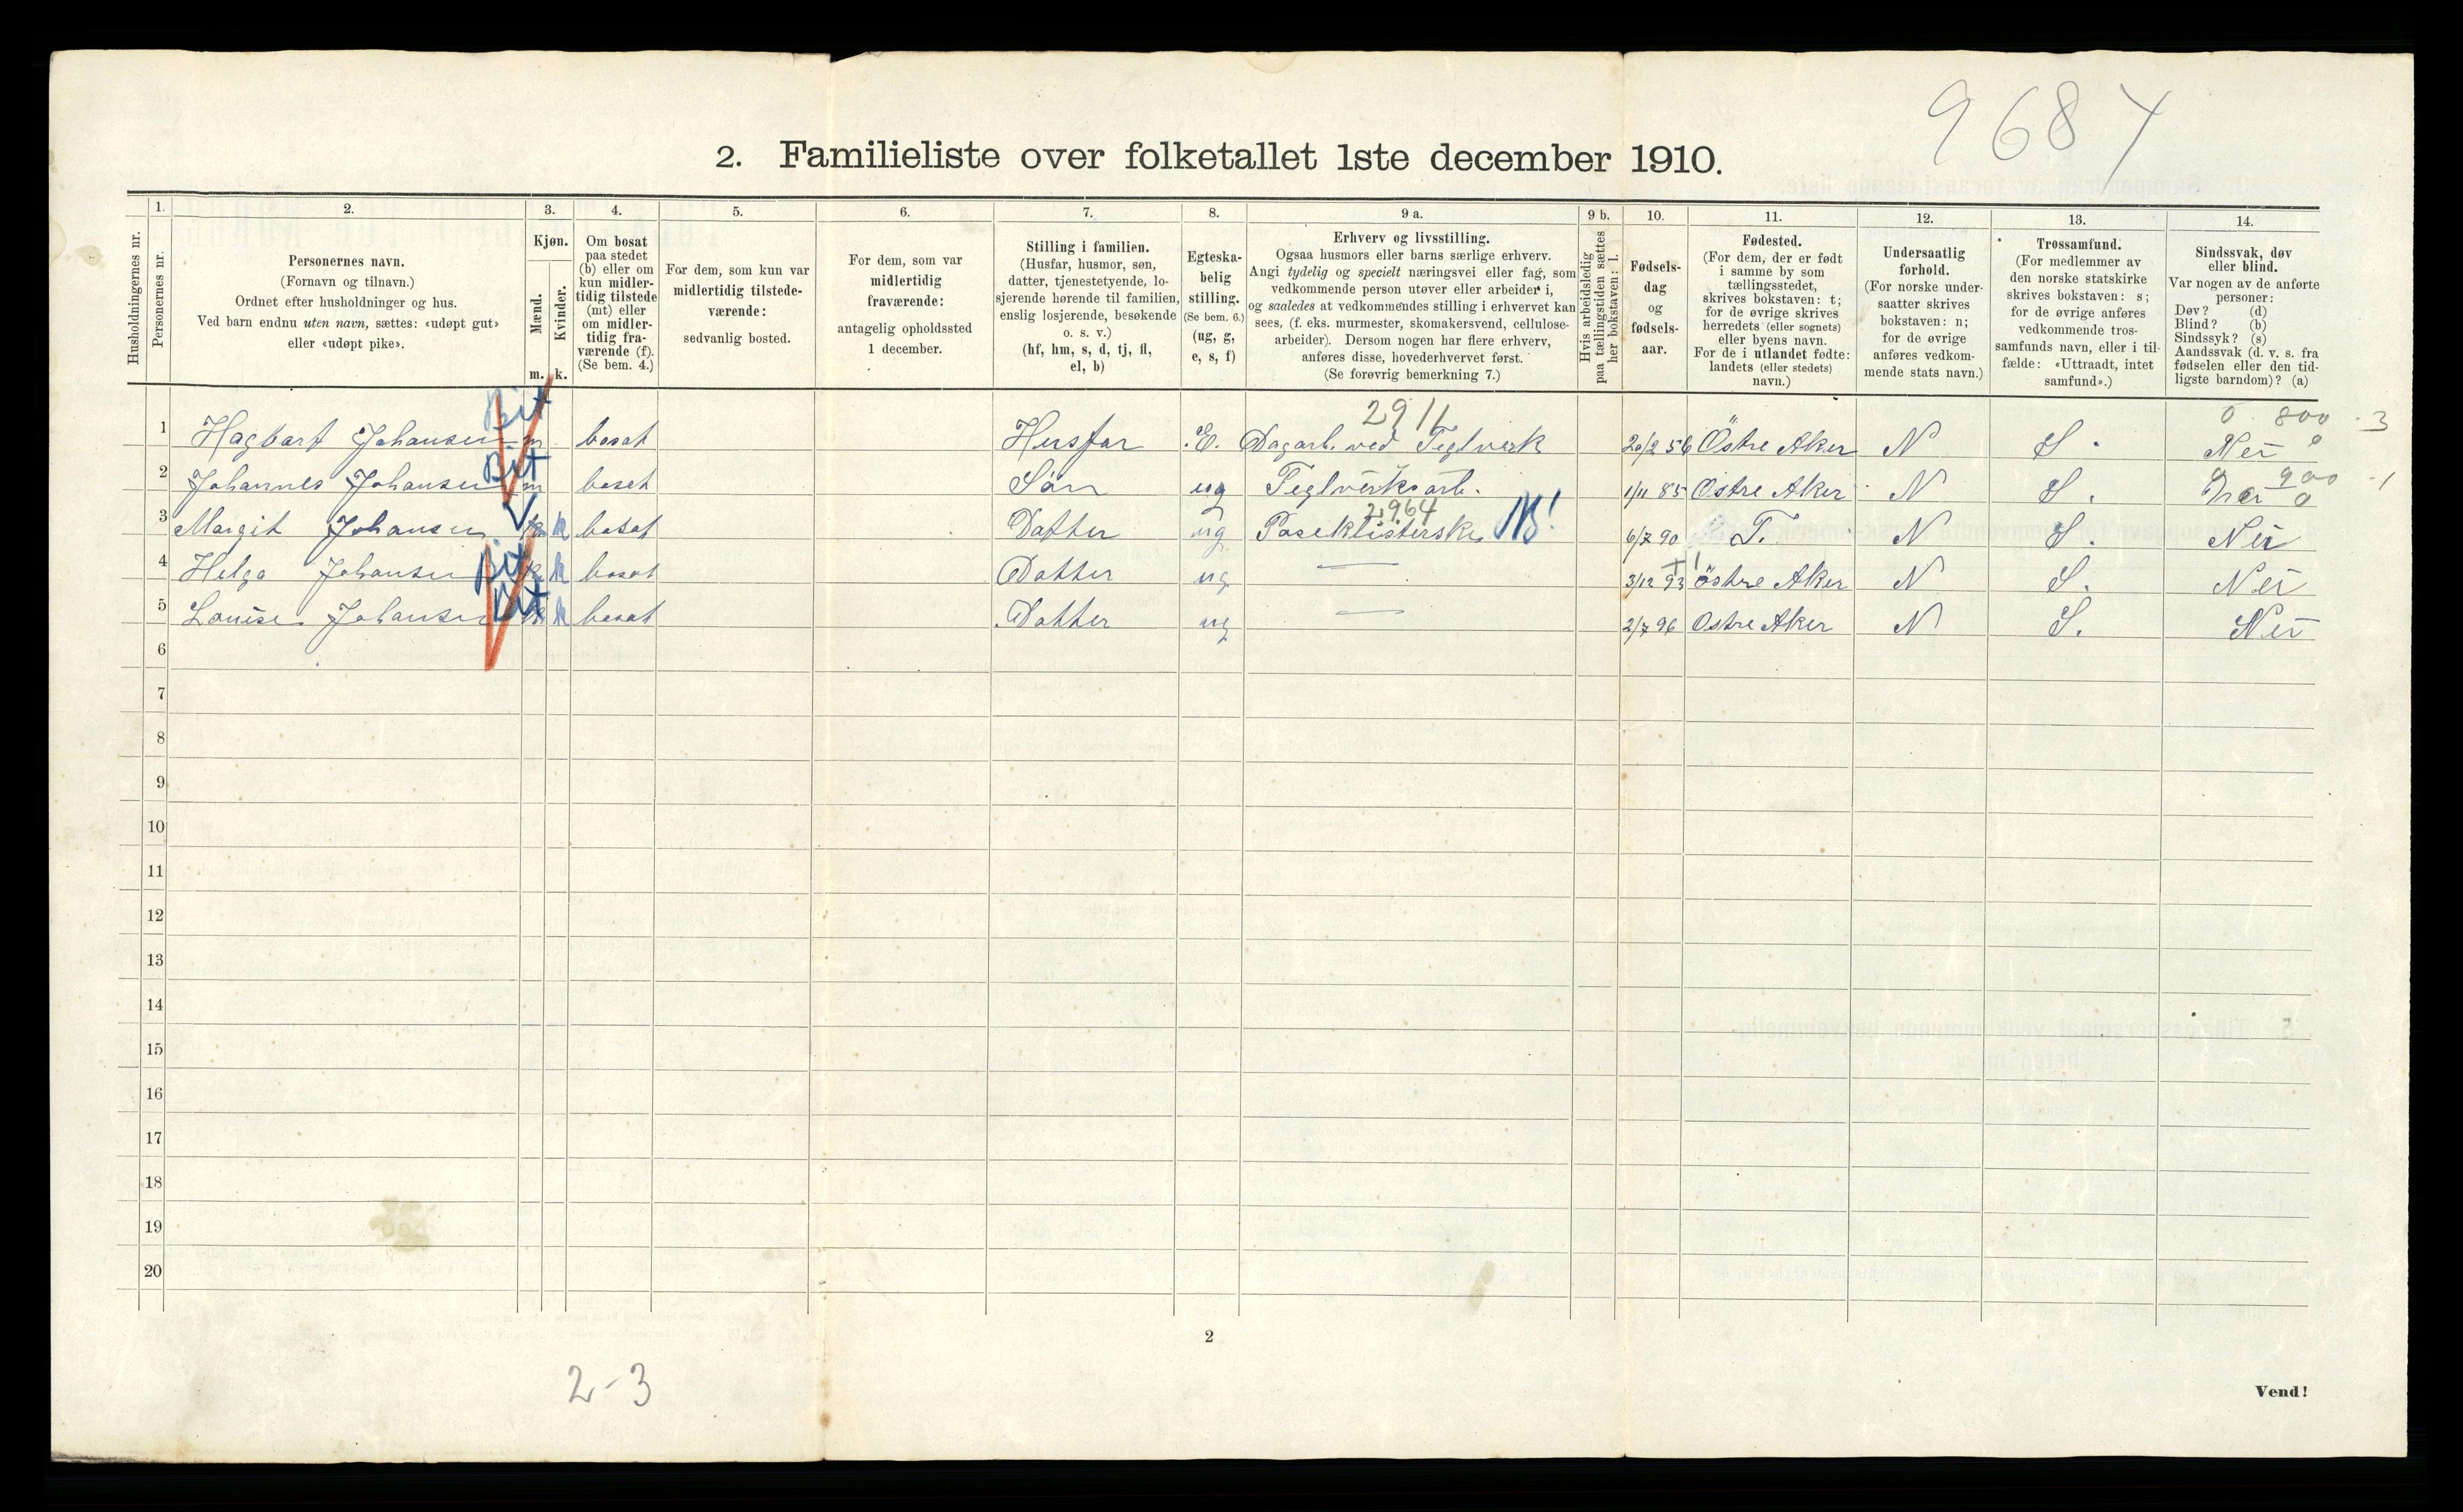 9684
2. Familieliste over folketallet 1ste december 1910.
Husholdningernes nr.
1. Personernes nr.
2. Personernes navn.
(Fornavn og tilnavn.)
Ordnet efter husholdninger og hus.
Ved barn endnu uten navn, sættes: «udøpt gut»
eller «udøpt pike».
3. Kjøn.
Mænd. m.
Kvinder. k.
4. Om bosat
paa stedet
(b) eller om
kun midler-
tidig tilstede
(mt) eller
om midler-
tidig fra-
værende (f).
(Se bem. 4.)
5. For dem, som kun var
midlertidig tilstede-
værende:
sedvanlig bosted.
6. For dem, som var
midlertidig
fraværende:
antagelig opholdssted
1 december.
7. Stilling i familien.
(Husfar, husmor, søn,
datter, tjenestetyende, lo-
sjerende hørende til familien,
enslig losjerende, besøkende
o. s. v.)
(hf, hm, s, d, tj, fl,
el, b)
8. Egteska-
belig
stilling.
(Se bem. 6.)
(ug, g,
e, s, f)
9 a. Erhverv og livsstilling.
Ogsaa husmors eller barns særlige erhverv.
Angi tydelig og specielt næringsvei eller fag, som
vedkommende person utøver eller arbeider i,
og saaledes at vedkommendes stilling i erhvervet kan
sees, (f. eks. murmester, skomakersvend, cellulose-
arbeider). Dersom nogen har flere erhverv,
anføres disse, hovederhvervet først.
(Se forøvrig bemerkning 7.)
9 b. Hvis arbeidsledig
paa tællingstiden sættes
her bokstaven: l.
10. Fødsels-
dag
og
fødsels-
aar.
11. Fødested.
(For dem, der er født
i samme by som
tællingsstedet,
skrives bokstaven: t;
for de øvrige skrives
herredets (eller sognets)
eller byens navn.
For de i utlandet fødte:
landets (eller stedets)
navn.)
12. Undersaatlig
forhold.
(For norske under-
saatter skrives
bokstaven: n;
for de øvrige
anføres vedkom-
mende stats navn.)
13. Trossamfund.
(For medlemmer av
den norske statskirke
skrives bokstaven: s;
for de øvrige anføres
vedkommende tros-
samfunds navn, eller i til-
fælde: «Uttraadt, intet
samfund».)
14. Sindssvak, døv
eller blind.
Var nogen av de anførte
personer:
Døv? (d)
Blind? (b)
Sindssyk? (s)
Aandssvak (d. v. s. fra
fødselen eller den tid-
ligste barndom)? (a)
Bit 2911 0 800 - 3
1 Hagbart Johansen m bosat Husfar E. Dagarb. ved Teglverk 20/2 56 Östre Aker N S. Nei 0
Bit 0 900 - 1
2 Johannes Johansen m bosat Sön ug Teglverksarb. 1/11 85 Östre Aker N S. Nei 0
2964
3 Margit Johansen k bosat Datter ug Poseklisterske 6/7 90 T. N S. Nei
Bit
4 Helga Johansen k bosat Datter ug — 3/12 93 östre Aker N S. Nei
Bit
5 Louise Johansen k bosat Datter ug — 2/7 96 Ostre Aker N S. Nei
6
7
8
9
10
11
12
13
14
15
16
17
18
19
20
2
2-3
Vend!